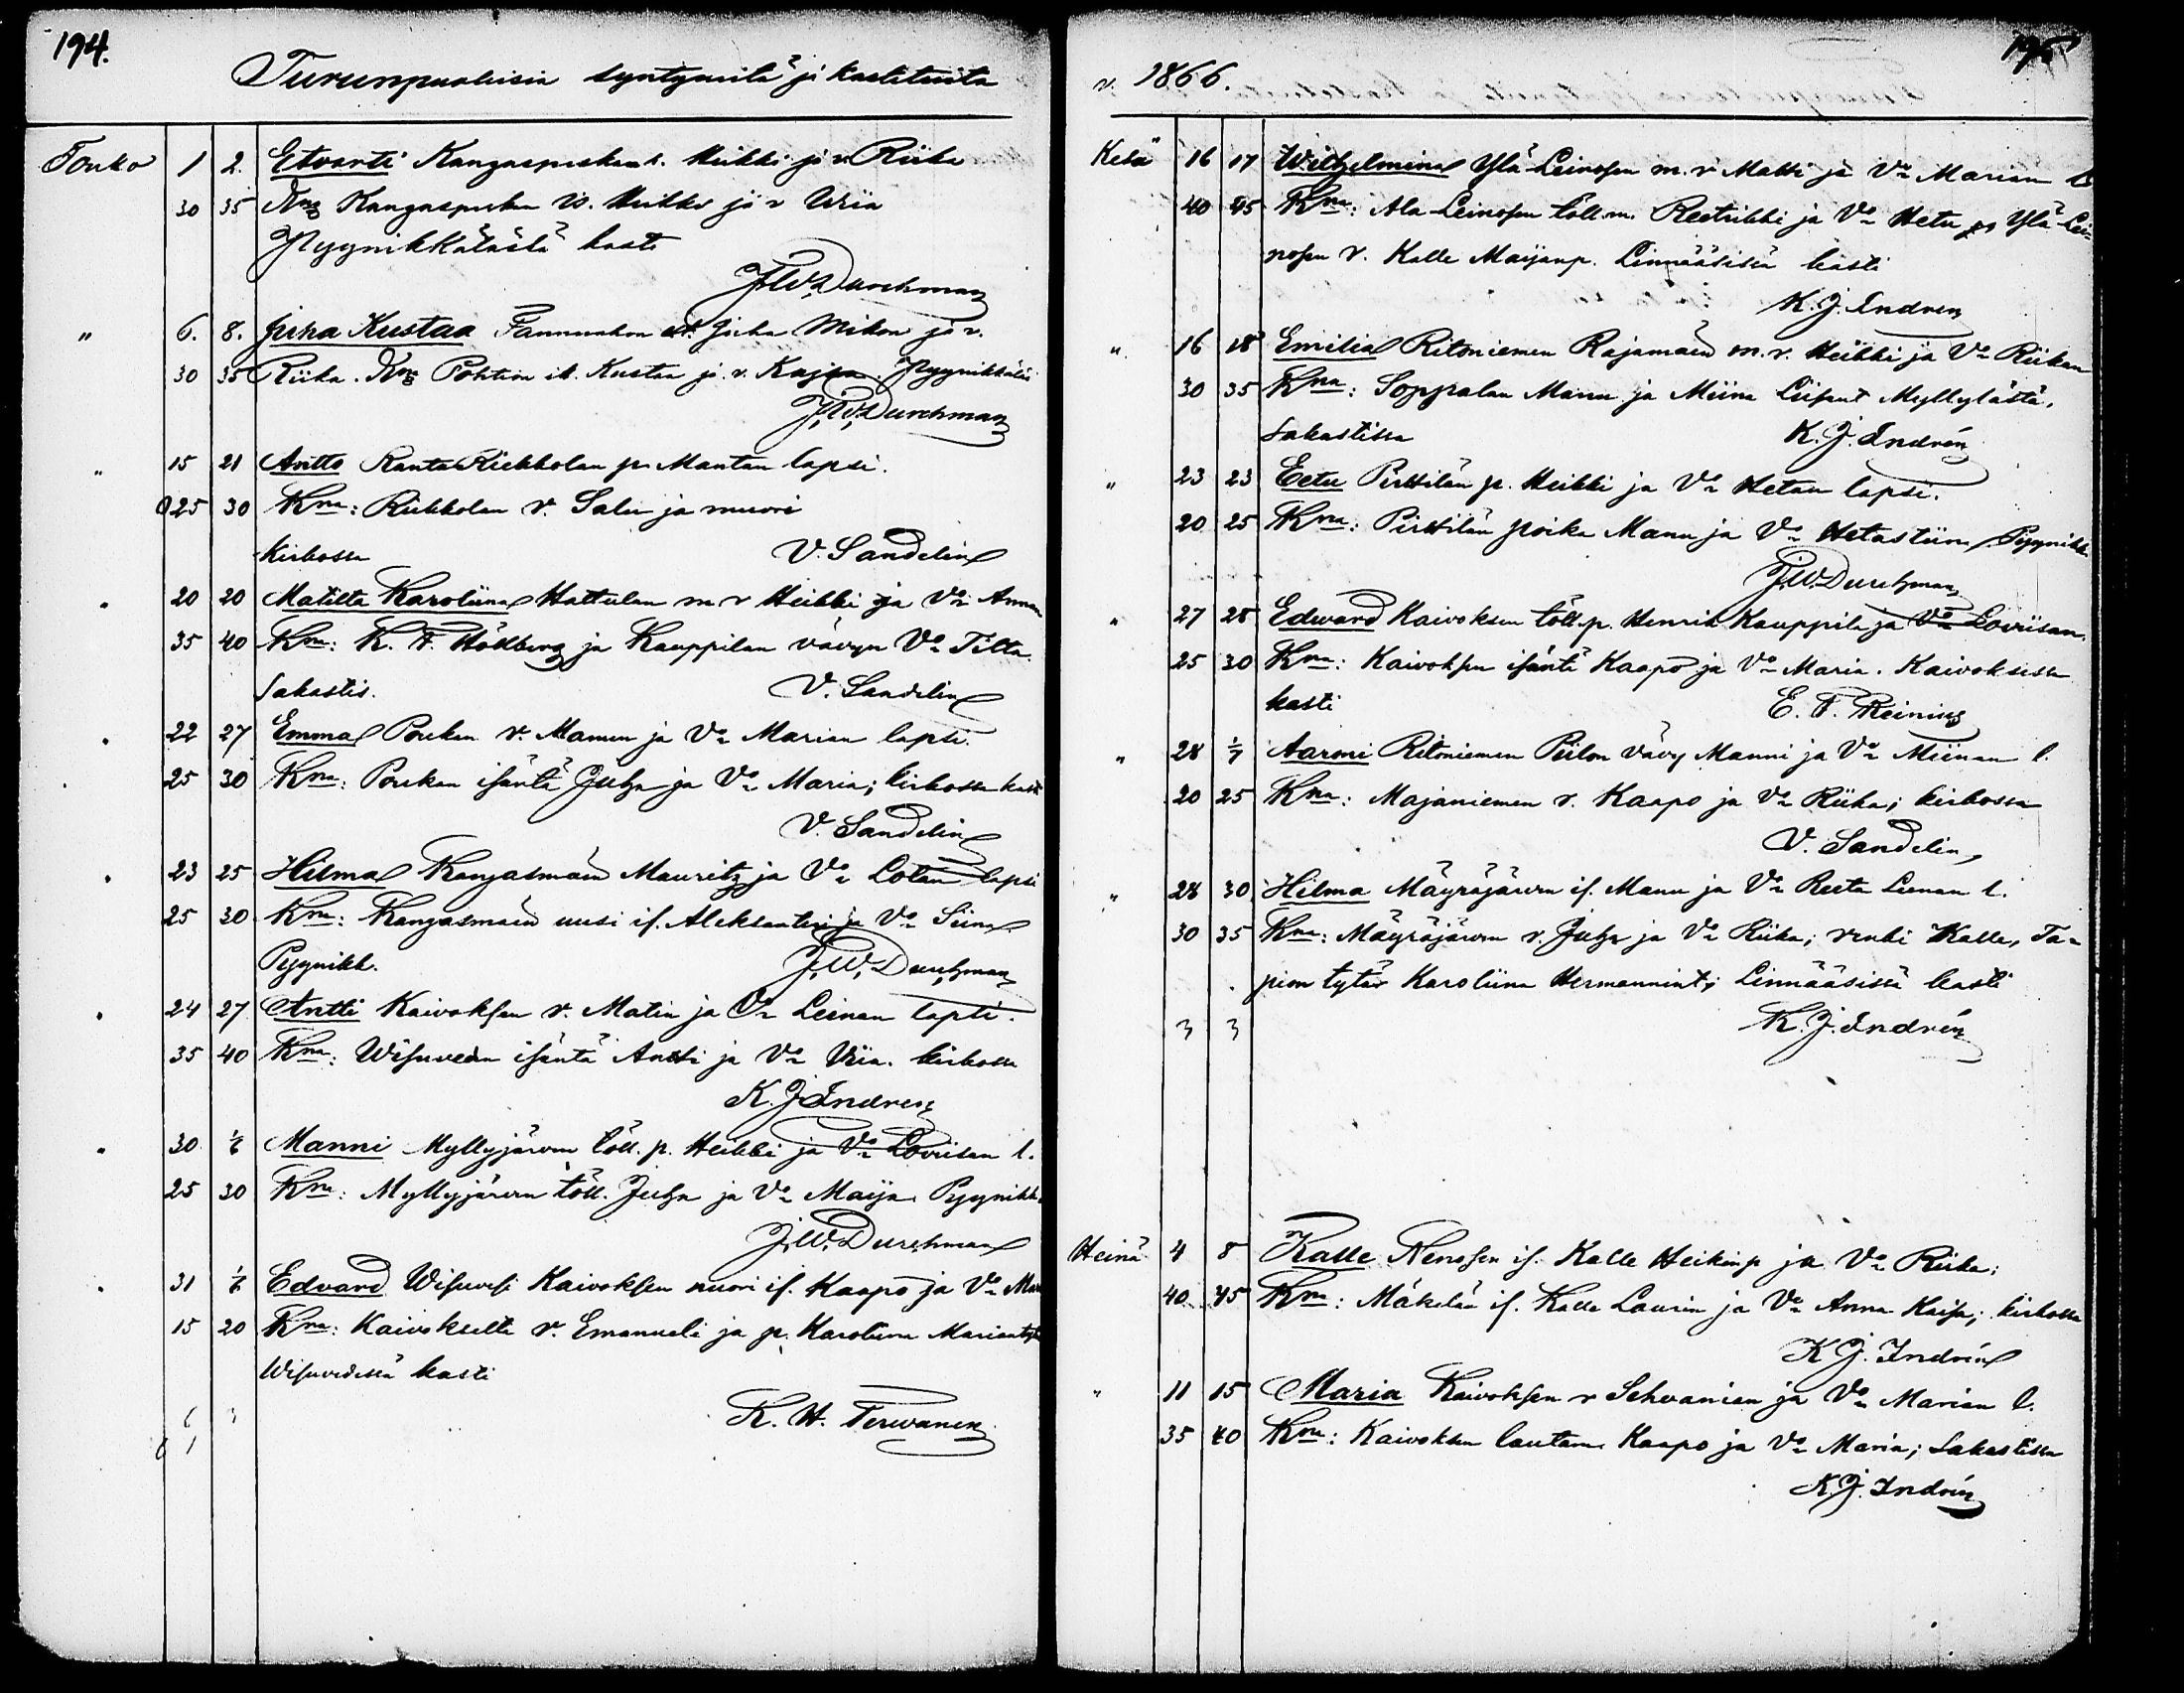 194.
Turunpuolisia syntyneitä ja kastetuita
Touko 1 2. Etvarti Kangaspuskan t. Heikki ja v. Riika
30 35 Kangaspuskan Heikki ja v Uria
Pyynikkälästä kasti
J.W. Durchman
" 6. 8. Juha Kustaa Juha Mikon ja v.
30 35 Riika. Kustaa ja v. Kajsa. Pyynikkäläs
J.W. Durchman
" 15 21 Antto Ranta Riekkolan p. Mantan lapsi.
25 30 Km: Riekkolan r. Salu ja muori
kirkossa V. Sandelin
" 20 20 Matilta Karoliina Hattulan m r Heikki ja Vo Annan
35 40 Km: K. F. Hökberg ja Kauppilan vävyn Vo Tilta.
Sakastis. V. Sandelin
" 22 27 Emma Poukan r. Manun ja Vo Marian lapsi.
25 30 Km: Poukan isäntä Juha ja Vo Maria; kirkossa kasti
V. Sandelin
" 23 25 Hilma Kangasmäen Mauritz ja Vo Lotan lapsi
25 30 Km: Kangasmäen uusi is. Aleksanteri ja Vo Siina
Pyynikk. J.W. Durchman
" 24 27 Antti Kaivoksen r. Matin ja Vo Leenan lapsi.
35 40 Km: Wisuveden isäntä Antti ja Vo Uria. kirkossa
K. J. Indren
" 30 1/6 Manni Myllyjärven töll. p. Heikki ja Vo Loviisan l.
25 30 Km: Myllyjärven töll. Juha ja Vo Maija Pyynikk.
J.W. Durchman
" 31 1/6 Edvard Wisuvesi Kaivoksen nuori is. Kaapo ja Vo
15 20 Km: Kaivokselta r. Emanueli ja p. Karoliina
Wisuvedessä kasti
K. H. Terwanen
v. 1866.
195
Kesä 16 17 Wilhelmina Ylä-Leinosen m. r Matti ja Vo Marian l.
40 45 Km: Ala-Leinosen töll. m. Reetrikki ja Vo Hetu ja Ylä-Lei-
nosen r. Kalle Maijanp. Linnääsissä kasti
K. J. Indren
" 16 18 Emilia Ritoniemen Rajamäen m. r. Heikki ja Vo Riikan
30 35 Km: Soppalan Manu ja Miina Liisant Myllylästä.
Sakastissa K. J. Indrén
" 23 23 Eetu Pirttilän p. Heikki ja Vo Hetan lapsi.
20 25 Km: Pirttilän poika Manu ja Vo Hetastiina. Pyynikk
J.W. Durchman
" 27 28 Edward Kaivoksen töll. p. Henrik Kauppila ja Vo Loviisan.
25 30 Km: Kaivoksen isäntä Kaapo ja Vo Maria. Kaivoksessa
kasti E. F. Reinius
" 28 1/7 Aaroni Ritoniemen Piilon vävy Manni ja Vo Miinan l.
20 25 Km: Majaniemen r. Kaapo ja Vo Riika; kirkossa
V. Sandelin
" 28 30 Hilma Mäyräjärven is. Manu ja Vo Reeta Leenan l.
30 35 Km: Mäyräjärven r. Juha ja Vo Riika; renki Kalle, Ta-
pion tytär Karoliina Hermannint; Linnääsissä kasti
3 3 K. J. Indrén
Heinä 4 8 Kalle Nenosen is. Kalle Heikinp ja Vo Riika;
40 45 Km: Mäkelän is. Kalle Laurin ja Vo Anna Kaisa; kirkossa
K J. Indrén
" 11 15 Maria Kaivoksen r Sehvanian ja Vo Marian l.
35 40 Km: Kaivoksen lautam. Kaapo ja Vo Maria; Sakastissa
K. J. Indrén